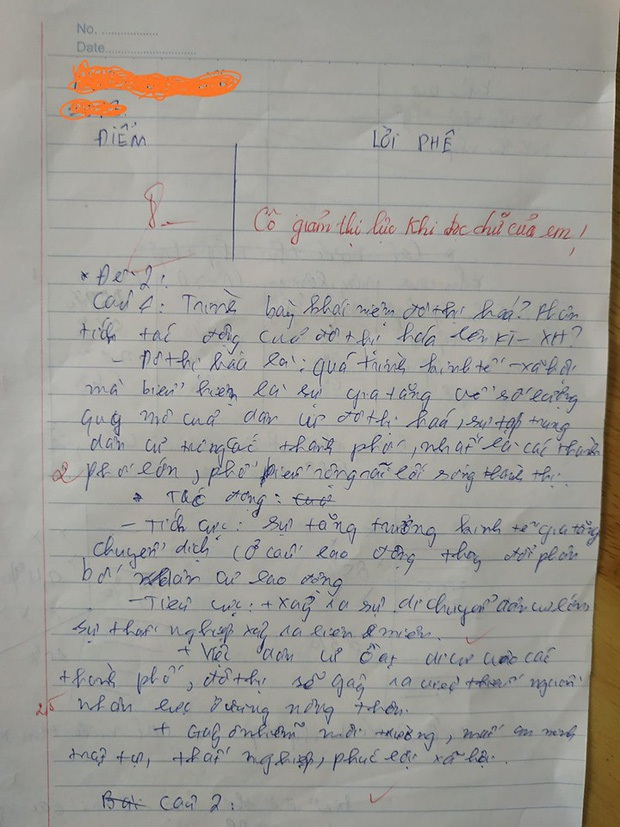 No. ................
Date............................
ĐIỂM
LỜI PHÊ
8
Cô giảm thị lực khi đọc chữ của em!
* Đề 2:
Câu 1: Trình bày khái niệm đô thị hoá? Phân
tích tác động của đô thị hóa lên KT - XH?
- Đô thị hóa là: quá trình kinh tế - xã hội
mà biểu hiện là sự gia tăng về số lượng
quy mô của dân cư đô thị hoá, sự tập trung
dân cư trong các thành phố, nhất là các thành
2 phố lớn, phổ biến rộng rãi lối sống thành thị.
* Tác động:
- Tích cực: sự tăng trưởng kinh tế gia tăng
chuyển dịch cơ cấu lao động thay đổi phân
bố dân cư lao động
- Tiêu cực: + xảy ra sự di chuyển dân cư lớn
sự thất nghiệp xảy ra
+ Việc dân cư ồ ạt di cư vào các
thành phố, đô thị sẽ gây ra việc thiếu nguồn
2,5 nhân lực ở vùng nông thôn.
+ Gây ô nhiễm môi trường, mất an ninh
trật tự, thất nghiệp, phúc lợi xã hội.
Bài Câu 2: